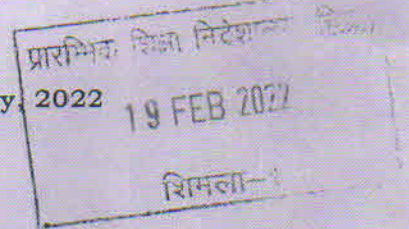 प्रारम्भिक शिक्षा निदेशालय
y, 2022
19 FEB 2022
शिमला-